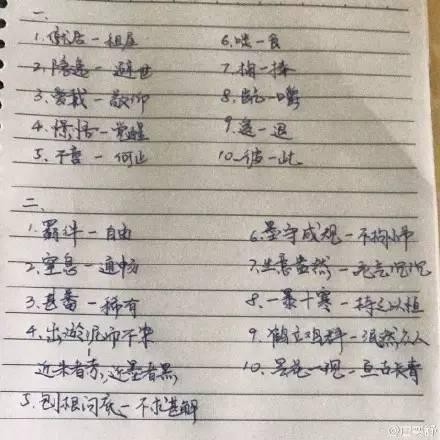 一、
1. 僦居—租屋
2. 隐遁—避世
3. 爱戴—敬仰
4. 憬悟—觉醒
5. 不啻—何止
6. 啖—食
7. 掬—捧
8. —嚼
9. —退
10. 彼—此
二、
1. 羁绊—自由
2. 窒息—通畅
3. 甚番—稀有
4. 出淤泥而不染—
近朱者赤,近墨者黑
5. 刨根问底—不求甚解
6. 墨守成规—不拘小节
7. 生意盎然—死气沉沉
8. 一暴十寒—持之以恒
9. 鹤立鸡群—泯然众人
10. 昙花一现—亘古长青